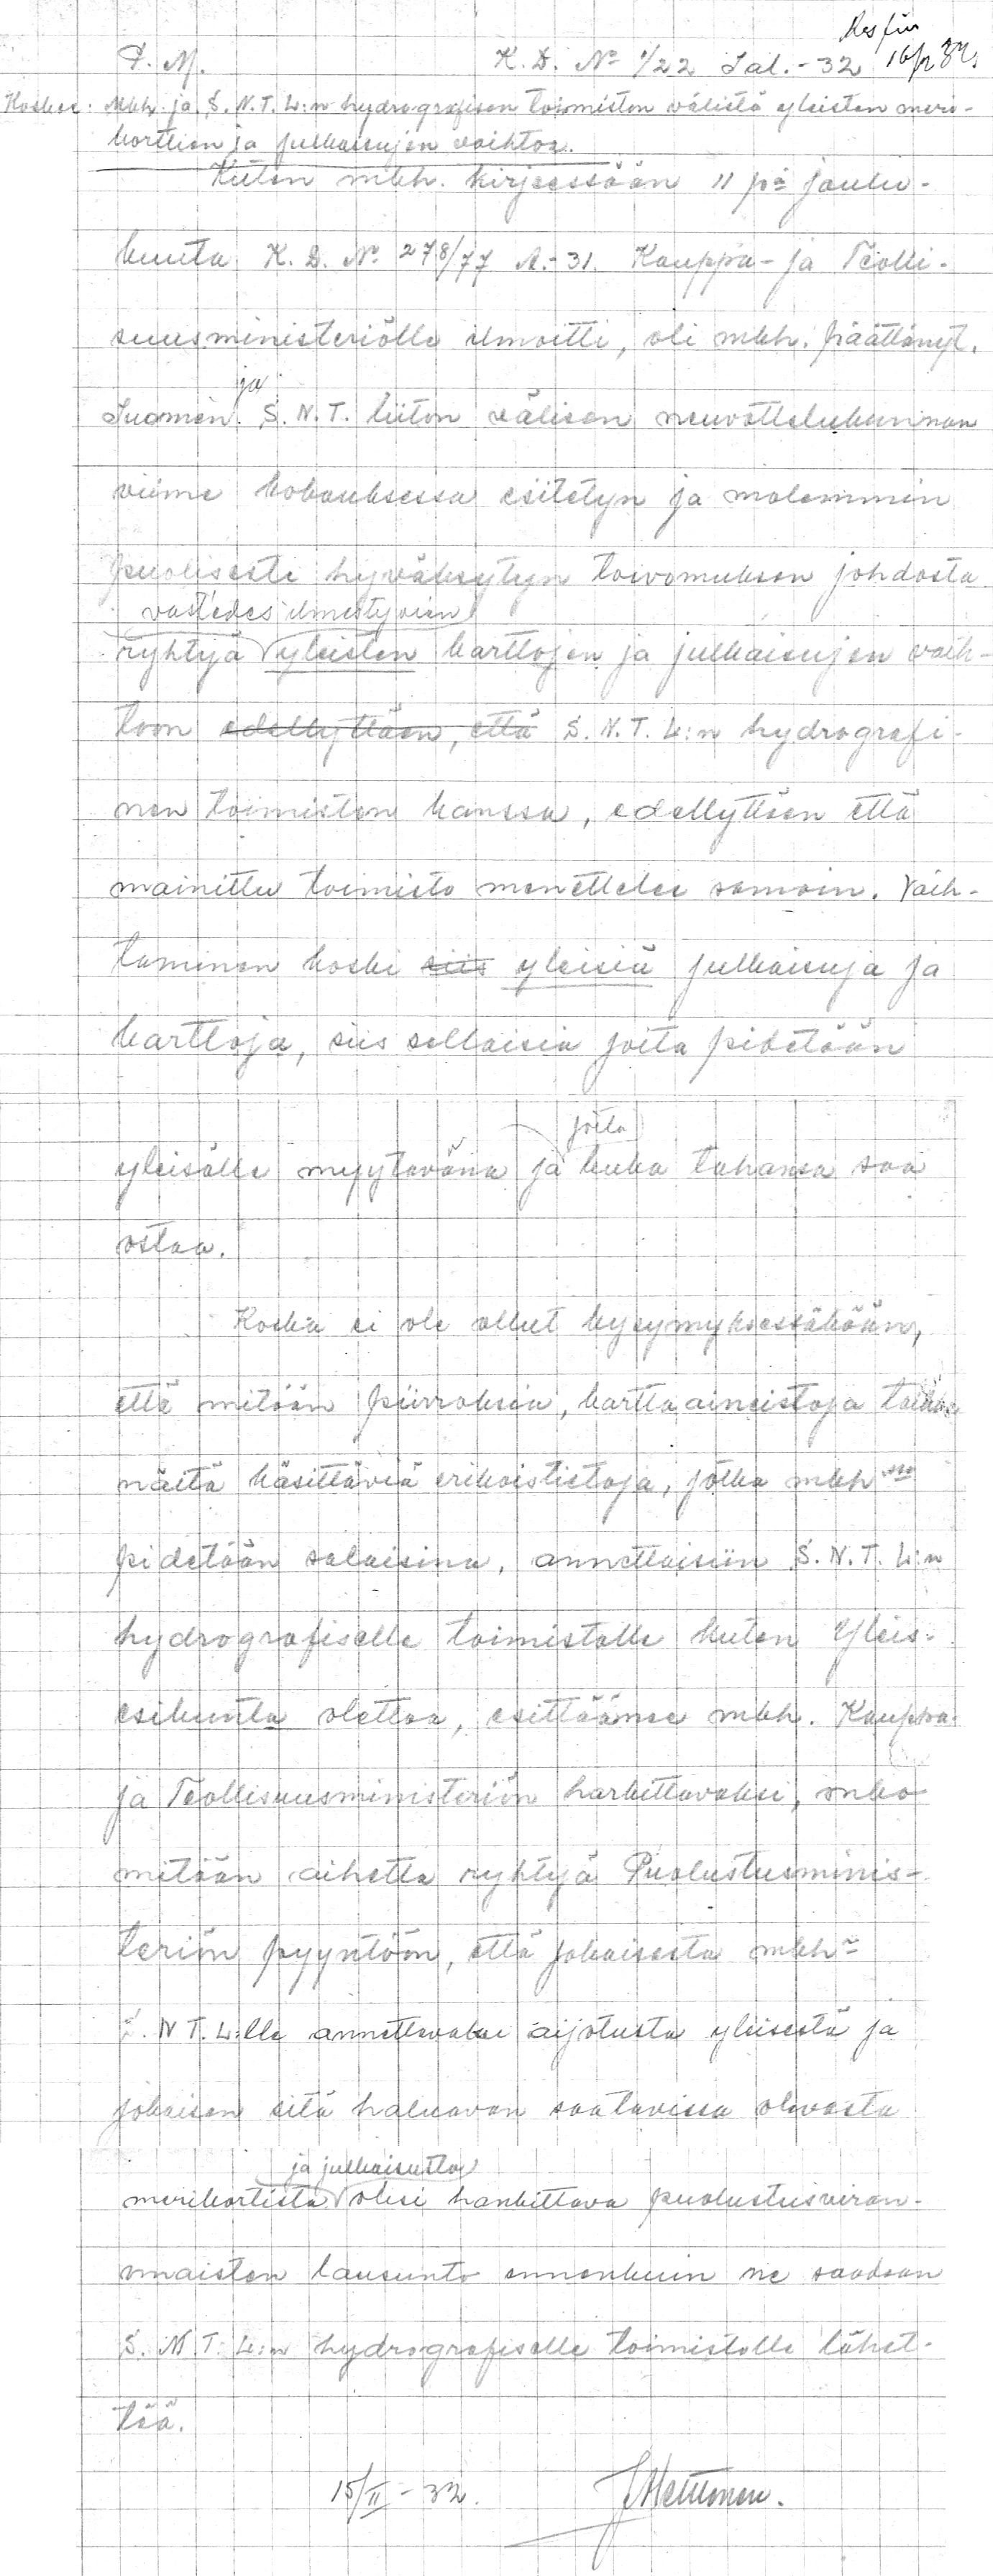 P. M. K. D. No 1/22 Sal.-32 16/2 32.
Koskee: Mkh. ja S. N. T. L:n hydrografisen toimiston välistä yleisten meri-
korttien ja julkaisujen vaihtoa.
Kuten mkh. kirjeessään 11 p:ä joulu-
kuuta K. D. No 278/77 A.-31. Kauppa- ja Teolli-
suusministeriölle ilmoitti, oli mkh. päättänyt.
ja
Suomen S. N. T. liiton välisen neuvottelukunnan
viime kokouksessa esitetyn ja molemmin
puolisesti hyväksytyn toivomuksen johdosta
vast'edes ilmestyvien
ryhtyä yleisten karttojen ja julkaisujen vaih-
toon edellyttäen, että S. N. T. L:n hydrografi-
nen toimiston kanssa, edellyttäen että
mainittu toimisto menettelee samoin. Vaih-
taminen koski siis yleisiä julkaisuja ja
karttoja, siis sellaisia joita pidetään
joita
yleisölle myytävänä ja kuka tahansa saa
ostaa.
Koska ei ole ollut kysymyksessäkään,
että mitään piirroksia, kartta aineistoja taikka
näitä käsittäviä erikoistietoja, jotka mkh:ssa
pidetään salaisina, annettaisiin S. N. T. L:n
hydrografiselle toimistolle kuten Yleis-
esikunta olettaa, esittäänee mkh. Kauppa-
ja Teollisuusministeriön harkittavaksi, onko
mitään aihetta ryhtyä Puolustusminis-
teriön pyyntöön, että jokaisesta mkh:n
S. N T. L:lle annettavaksi aijotusta yleisestä ja
jokaisen sitä haluavan saatavissa olevasta
ja julkaisusta
merikortista olisi hankittava puolustusviran-
omaisten lausunto ennenkuin ne saadaan
S. N. T. L:n hydrografiselle toimistolle lähet-
tää.
15/II - 32.